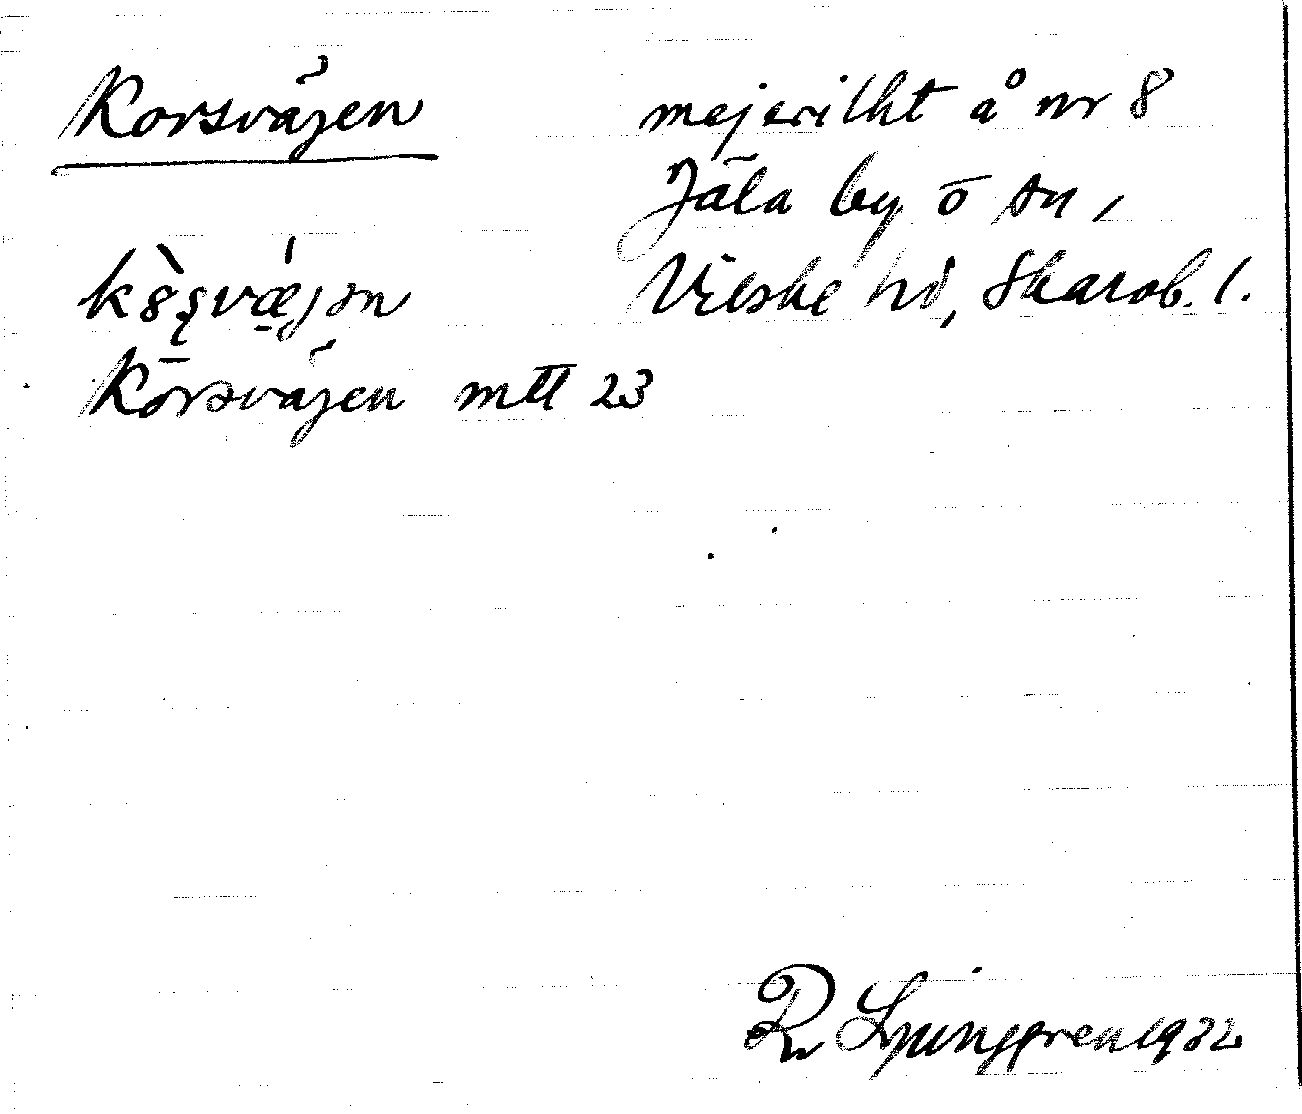 Korsvägen mejerilht å nr 8
Jäla by o sn,
Vilske hd, Skarab. l.
Korsvägen mtl 23
R Ljunggren 1932